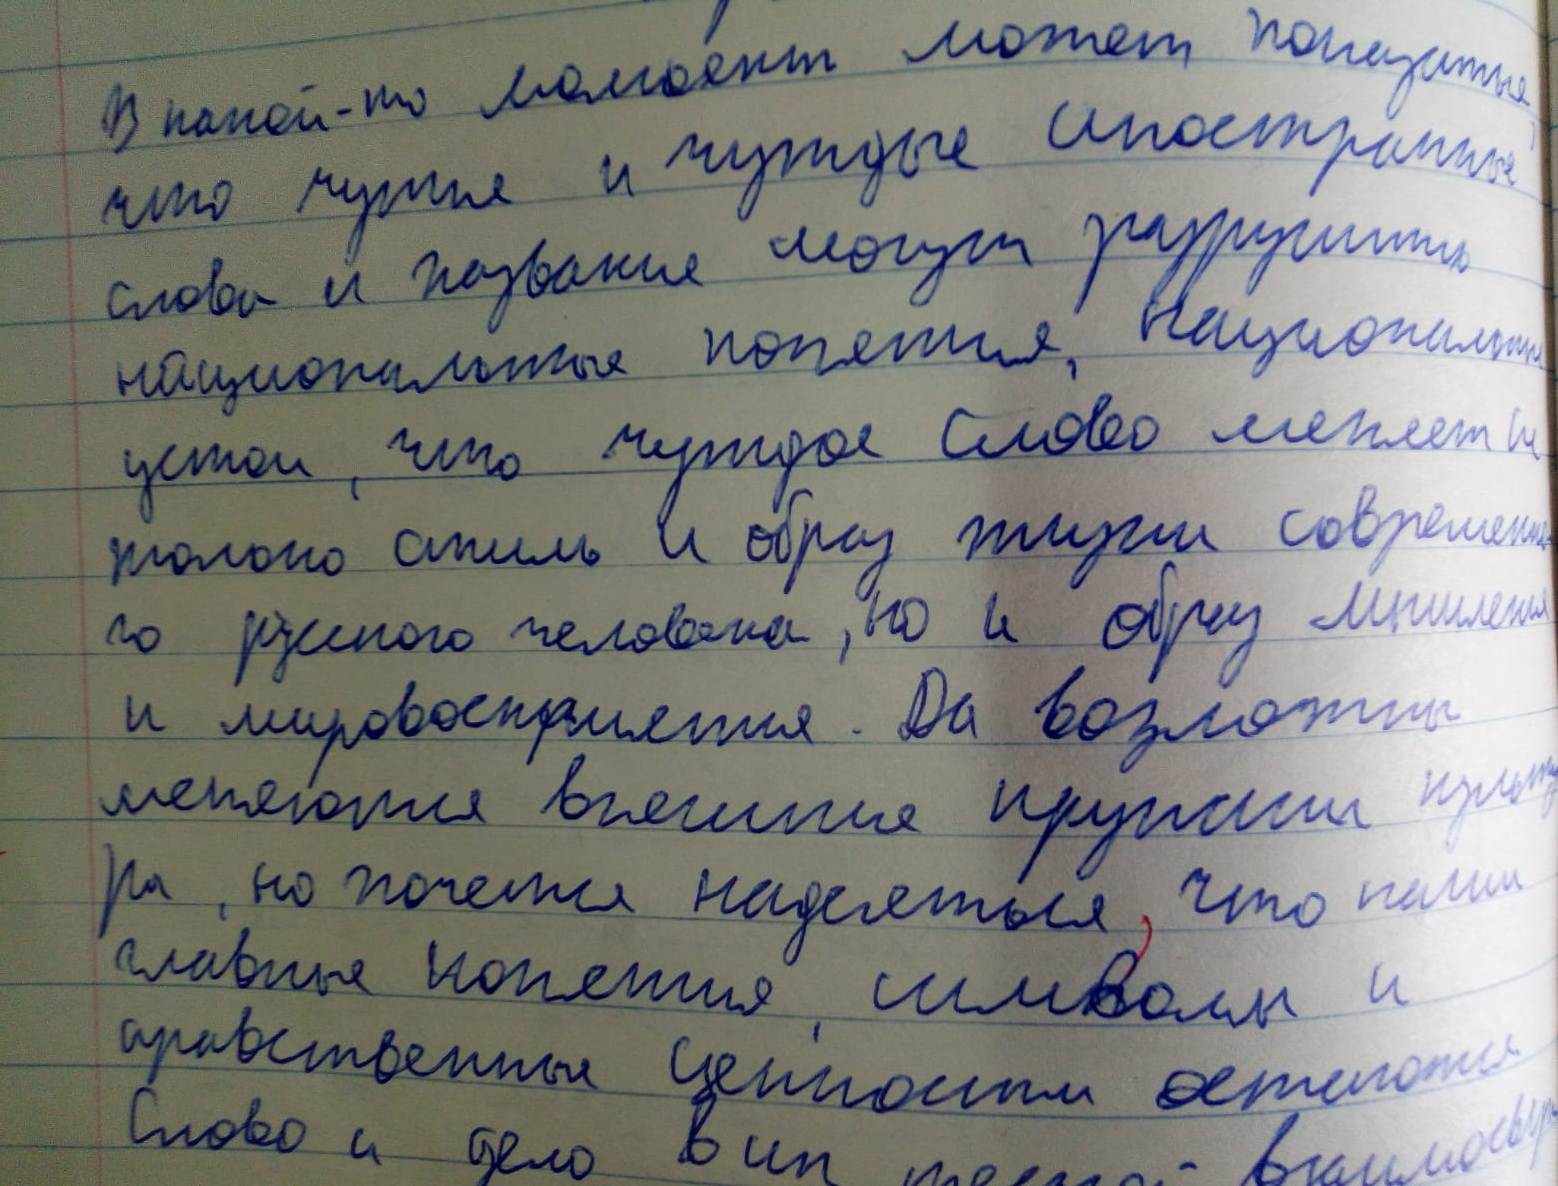 В какой-то момент может показаться,
что чужие и чуждые иностранные
слова и названия могут разрушить
национальные понятия, национальные
устои, что чуждое слово меняет не
только стиль и образ жизни современно
го русского человека, но и образ мышления
и мировосприятия. Да возможны
меняются внешние кружки культу
ры, но хочется надеяться, что наши
главные понятия, символы и
нравственные ценности остаются
Слово и дело в их тесной взаимосвяз